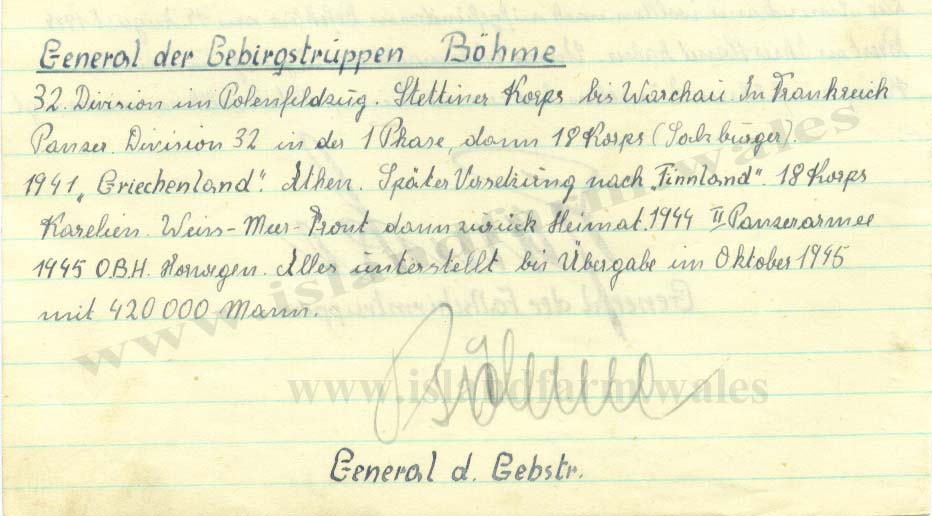 General der Gebirgstruppen Böhme
32. Division im Polenfeldzug. Stettiner Korps bis Warchau. In Frankreich
Panzer. Division 32 in der 1 Phase, dann 18 Korps (Salzburger).
1941 „Griechenland". Athen. Später Versetzung nach „Finnland". 18 Korps
Karelien. Weiss-Meer-Front dann zurück Heimat. 1944 II Panzerarmee
1945 O.B.H. Norwegen. Alles unterstellt bis Übergabe im Oktober 1945
mit 420 000 Mann.
www.islandfarm.wales
www.islandfarm.wales
Böhme
General d. Gebstr.